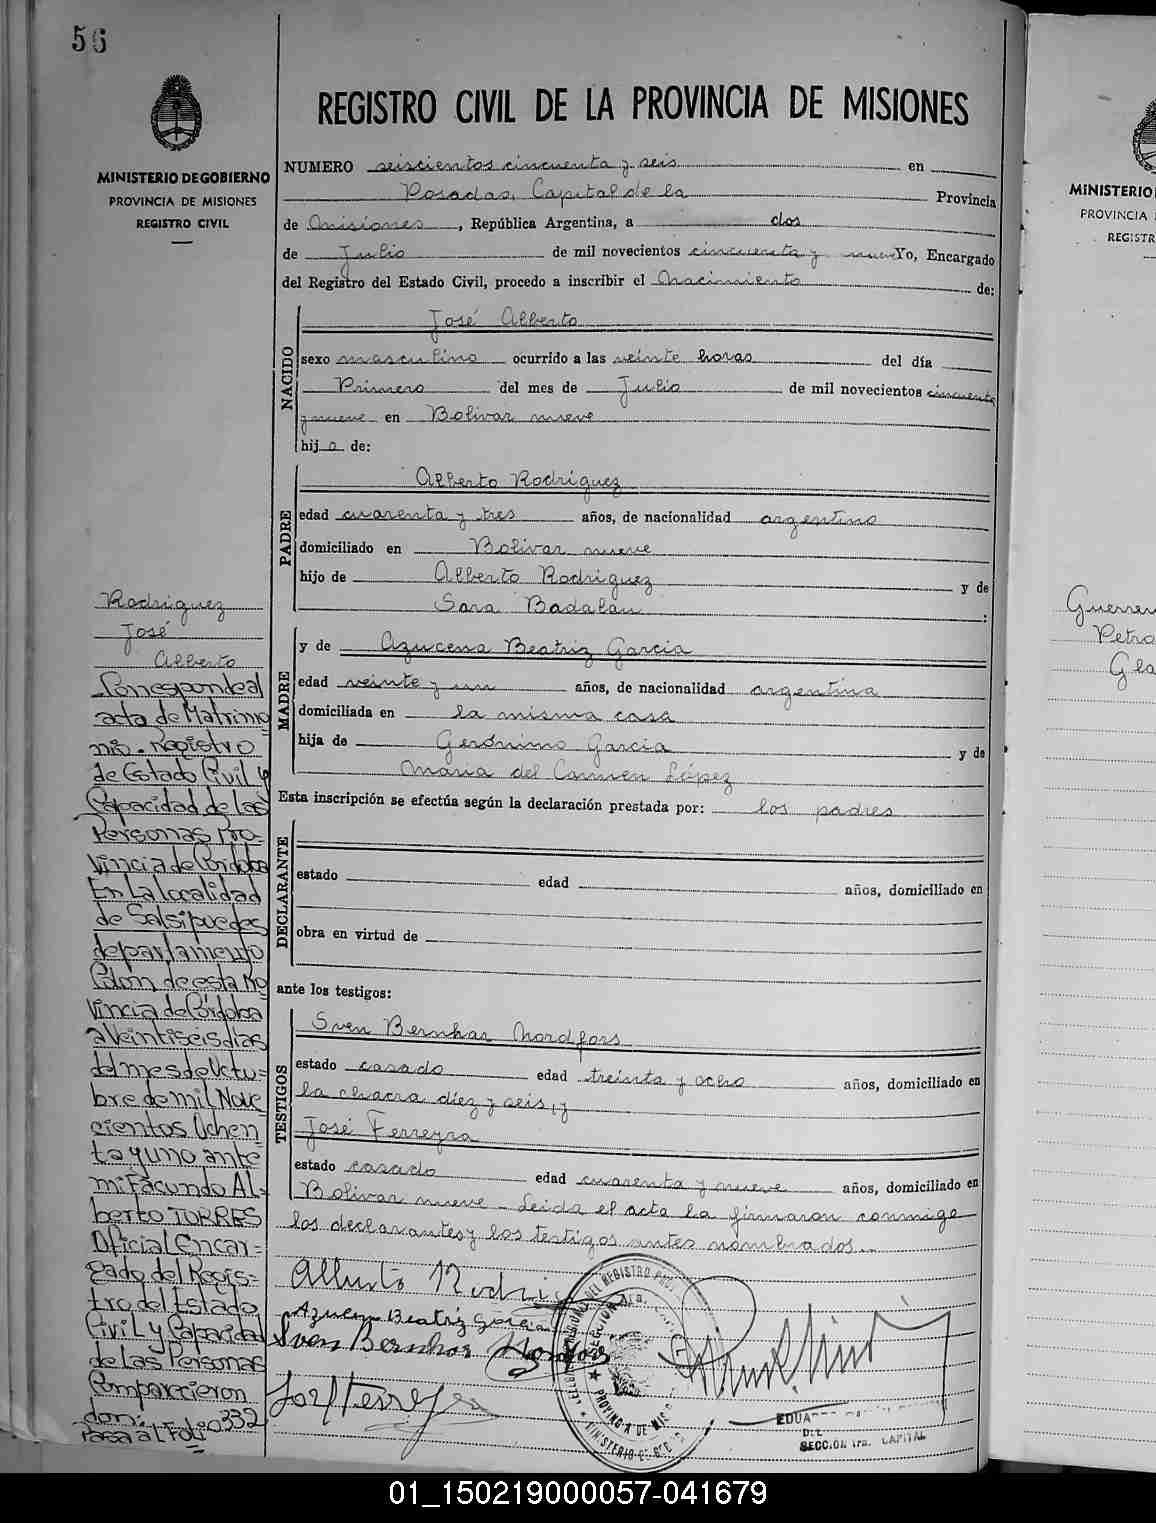 56
REGISTRO CIVIL DE LA PROVINCIA DE MISIONES
MINISTERIO DE GOBIERNO
PROVINCIA DE MISIONES
REGISTRO CIVIL
NUMERO seiscientos cincuenta y seis en
Posadas, Capital de la Provincia
de Misiones, República Argentina, a dos
de Julio de mil novecientos cincuenta y nueve Yo, Encargado
del Registro del Estado Civil, procedo a inscribir el Nacimiento de:
NACIDO
José Alberto
sexo masculino ocurrido a las veinte horas del día
Primero del mes de Julio de mil novecientos cincuenta
y nueve en Bolivar nueve
hijo de:
PADRE
Alberto Rodriguez
edad cuarenta y tres años, de nacionalidad argentino
domiciliado en Bolivar nueve
hijo de Alberto Rodriguez y de
Sara Badalau :
MADRE
y de Azucena Beatriz Garcia
edad veinte y un años, de nacionalidad argentina
domiciliada en la misma casa
hija de Gerónimo Garcia y de
Maria del Carmen López
Esta inscripción se efectúa según la declaración prestada por: los padres
DECLARANTE
estado edad años, domiciliado en
obra en virtud de
ante los testigos:
TESTIGOS
Sven Bernhar Nordfors
estado casado edad treinta y ocho años, domiciliado en
la chacra diez y seis, y
José Ferreyra
estado casado edad cuarenta y nueve años, domiciliado en
Bolivar nueve - Leida el acta la firmaron conmigo
los declarantes y los testigos antes nombrados.-
Alberto Rodrig
Azucen Beatriz Garcia
Sven Bernhar Nordfors
José Ferreyra
SECCION 1ra. CAPITAL
Rodriguez
José
Alberto
Corresponde al
acta de Matrimo
nio. Registro
de Estado Civil y
Capacidad de las
Personas Pro-
vincia de Córdoba
En La localidad
de Salsipuedes
departamiento
Colon de esta Pro
vincia de Córdoba
a Veintiseis días
del mes de Octu=
bre de mil Nove
cientos Ochen
ta y uno ante
mi Facundo Al=
berto TORRES
Oficial Encar=
gado del Regis=
tro del Estado
Civil y Capacidad
de las Personas
Comparecieron
don:
Pasa al Folio 332
MINISTERIO
PROVINCIA
REGISTR
Guerre
Petro
Gla
01_150219000057-041679